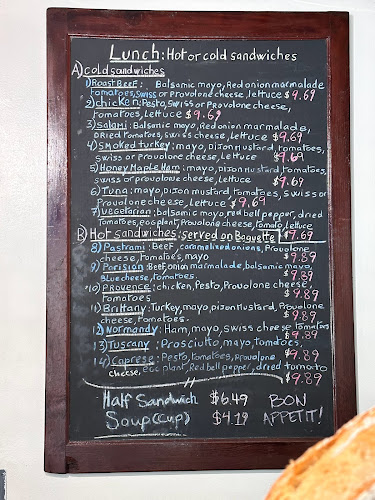 Lunch: Hot or cold sandwiches
A) cold sandwiches
1) Roast Beef: Balsamic mayo, Red onion marmalade
Tomatoes, Swiss or Provolone cheese, lettuce $9.69
2) chicken: Pesto, Swiss or Provolone cheese,
Tomatoes, Lettuce $9.69
3) Salami: Balsamic mayo, Red onion marmalade,
DRied Tomatoes, Swiss cheese, Lettuce $9.69
4) Smoked turkey: mayo, Dijon mustard, tomatoes,
swiss or provolone cheese, lettuce $9.69
5) Honey Maple Ham: mayo, Dijon mustard, Tomatoes,
swiss or provolone cheese, lettuce $9.69
6) Tuna: mayo, Dijon mustard Tomatoes, Swiss or
Provolone cheese, Lettuce $9.69
7) Vegetarian: balsamic mayo, red bell pepper, dried
Tomatoes, eggplant, Provolone cheese, Tomato, Lettuce
B) Hot sandwiches: served on Baguette $9.69
8) Pastrami: Beef, caramelized onions, Provolone
cheese, Tomatoes, mayo $9.89
9) Parisian: Beef, onion marmalade, balsamic mayo,
Blue cheese, Tomatoes. $9.89
10) Provence: chicken, Pesto, Provolone cheese,
Tomatoes $9.89
11) Brittany: Turkey, mayo, Dijon mustard, Provolone
cheese, Tomatoes. $9.89
12) Normandy: Ham, mayo, swiss cheese Tomatoes
$9.89
13) Tuscany: Prosciutto, mayo, tomatoes,
$9.89
14) Caprese: Pesto, tomatoes, provolone
cheese, eggplant, Red bell pepper, dried tomato
$9.89
Half Sandwich $6.49 BON
Soup (cup) $4.19 APPETIT!